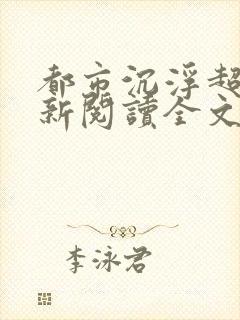 都市沉浮超
新閱讀全文
李泳君